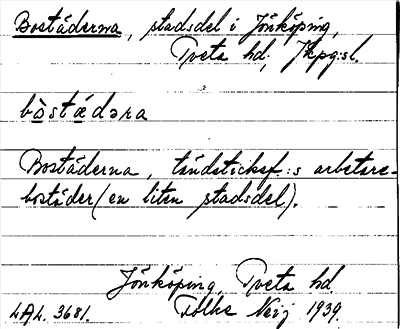 Bostäderna, stadsdel i Jönköping,
Tveta hd, Jkpg:sl.
bòstǽdəra
Bostäderna, tändsticksf:s arbetare-
bostäder (en liten stadsdel).
Jönköping, Tveta hd.
LAL. 3681. Folke Neij 1939.